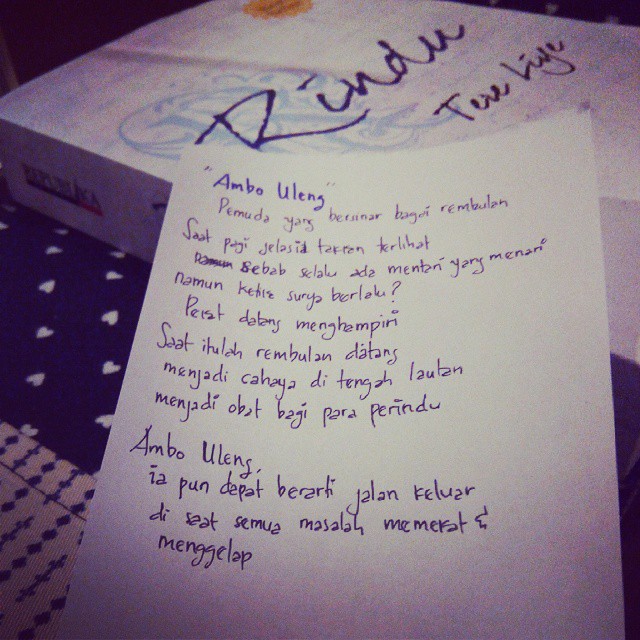 Rindu
Tere Liye
REPUBLIKA
"Ambo Uleng"
Pemuda yang bersinar bagai rembulan
Saat pagi jelas ia takkan terlihat
sebab selalu ada mentari yang menari
namun ketika surya berlalu?
Pekat datang menghampiri
Saat itulah rembulan datang
menjadi cahaya di tengah lautan
menjadi obat bagi para perindu
Ambo Uleng,
ia pun dapat berarti jalan keluar
di saat semua masalah memekat &
menggelap